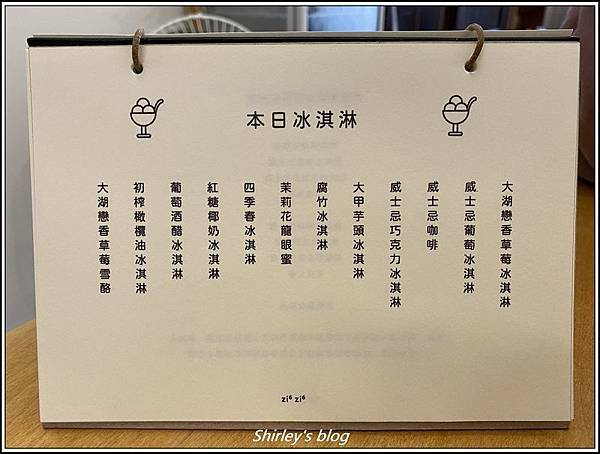 本日冰淇淋
大湖戀香草莓冰淇淋
威士忌葡萄冰淇淋
威士忌咖啡
威士忌巧克力冰淇淋
大甲芋頭冰淇淋
腐竹冰淇淋
茉莉花龍眼蜜
四季春冰淇淋
紅糖椰奶冰淇淋
葡萄酒醋冰淇淋
初榨橄欖油冰淇淋
大湖戀香草莓雪酪
zi⁶ zi⁶
Shirley's blog